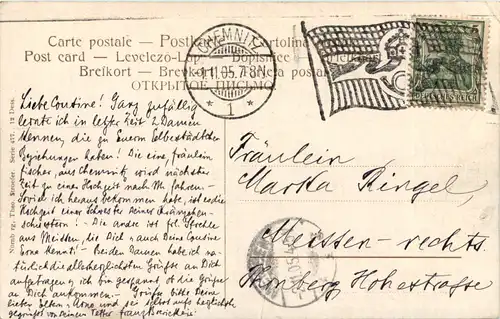 Carte postale — Postkarte — Cartolina
Post card — Levelezo-Lap — Dopisnice
Brefkort — Brevkort
ОТКРЫТОЕ ПИСЬМО.
CHEMNITZ
1.11.05. 7-8N.
* 1 *
DEUTSCHES REICH
5
Theo. Stroefer Serie 477. 12 Dess.
Liebe Cousine! Ganz zufällig
lernte ich in letzter Zeit 2 Damen
kennen, die zu Euerm Selbstädtischen
Beziehungen haben! Die eine, Fräulein
Fischer, aus Chemnitz wird nächster
Zeit zu einer Hochzeit nach M. fahren –
Soviel ich heraus bekommen habe, ist es die
Hochzeit einer Schwester Deiner Kränzchen-
schwestern! – Die andre ist Frl.
aus Meissen, die Dich u. auch Deine Cousine
Erna kennt! – Beiden Damen habe ich na-
türlich die allerherzlichsten Grüsse an Dich
aufgetragen, ich bin gespannt ob die Grüsse
an Dich ankommen. – Grüsse bitte Deine
lieben Eltern, Erna und sei selbst aufs herzlichste
gegrüsst von Deinem Vetter
Fräulein
Marta Ringel,
Meissen – rechts.
Hohestrasse